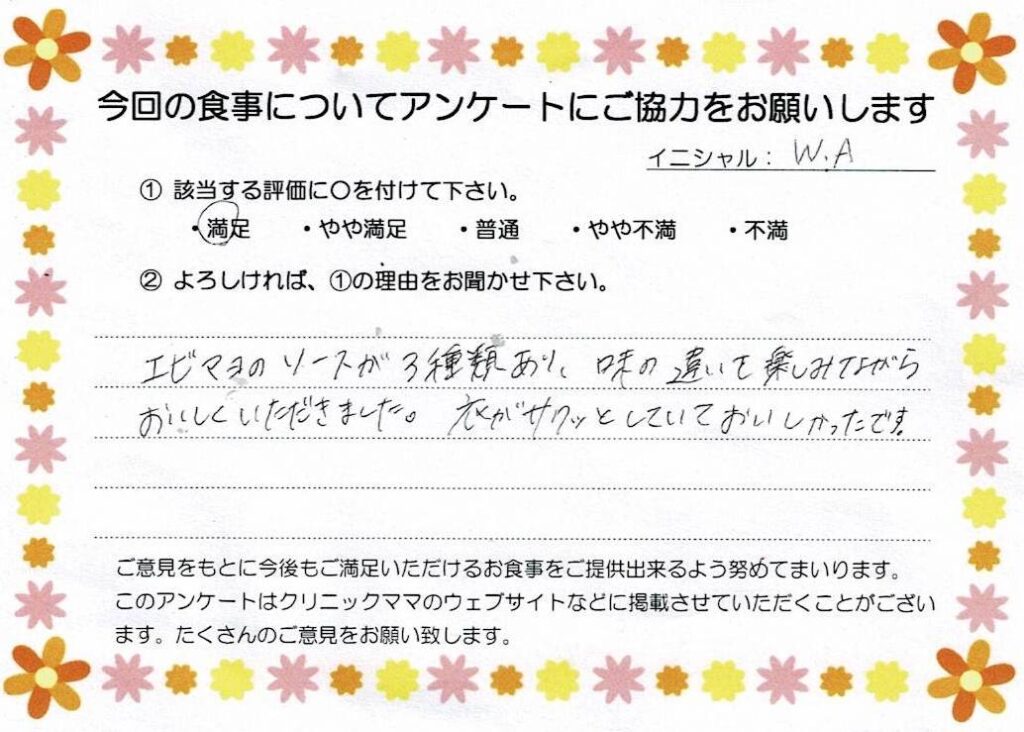 今回の食事についてアンケートにご協力をお願いします
イニシャル： W.A
① 該当する評価に〇を付けて下さい。
・満足 ・やや満足 ・普通 ・やや不満 ・不満
② よろしければ、①の理由をお聞かせ下さい。
エビマヨのソースが3種類あり、味の違いを楽しみながら
おいしくいただきました。衣がサクッとしていておいしかったです。
ご意見をもとに今後もご満足いただけるお食事をご提供出来るよう努めてまいります。
このアンケートはクリニックママのウェブサイトなどに掲載させていただくことがござい
ます。たくさんのご意見をお願い致します。